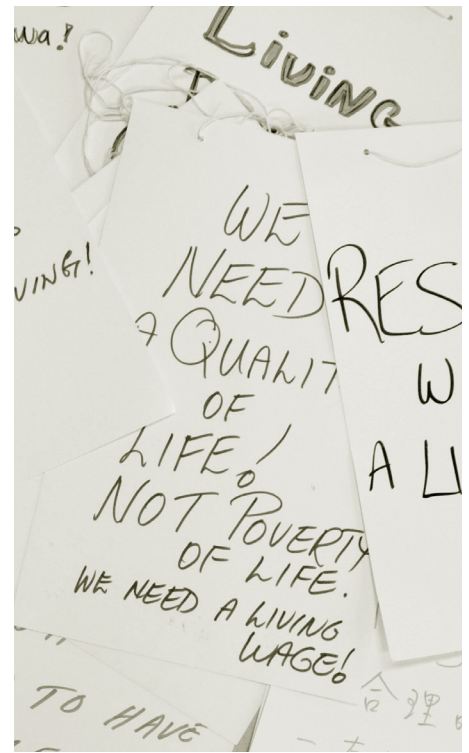 wa!
LIVING
VING!
WE
NEED
A QUALIT
OF
LIFE!
NOT POVERTY
OF LIFE.
WE NEED A LIVING
WAGE!
RES
W
A LI
TO HAVE
合理